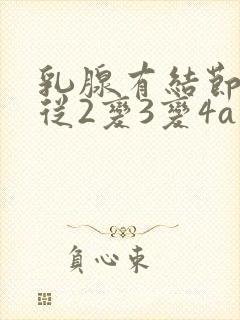 乳腺有結節
從2變3變4a
負心束